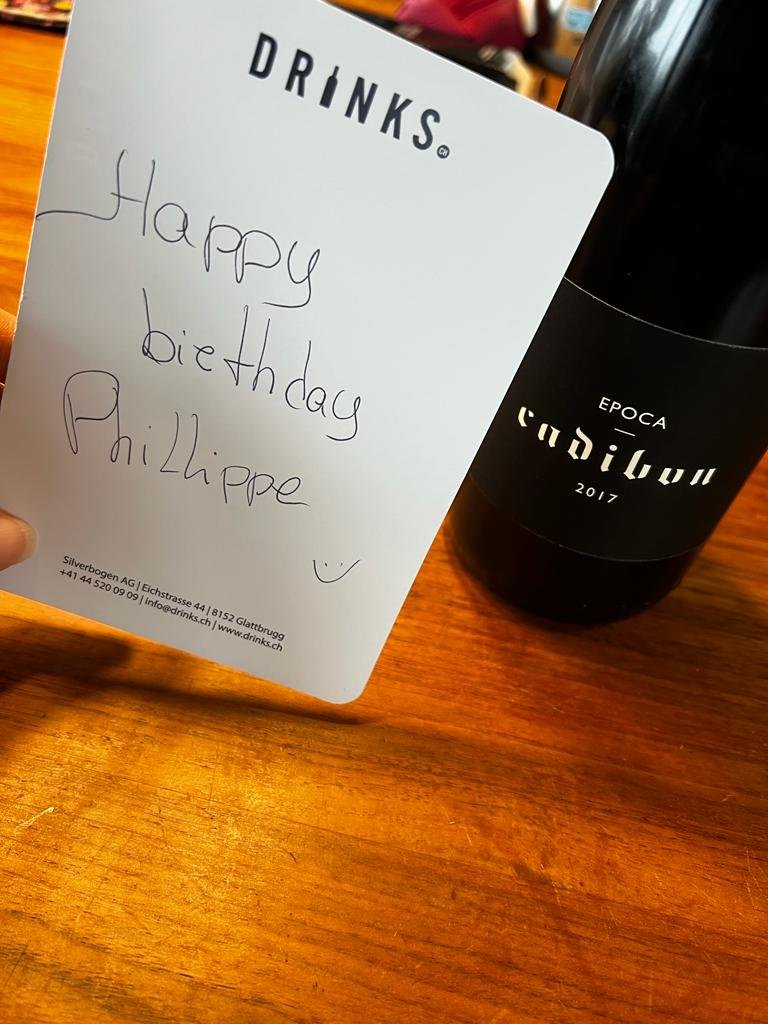 DRINKS.CH
Happy
birthday
Phillippe
Silverbogen AG | Eichstrasse 44 | 8152 Glattbrugg
+41 44 520 09 09 | info@drinks.ch | www.drinks.ch
EPOCA
cadibon
2017